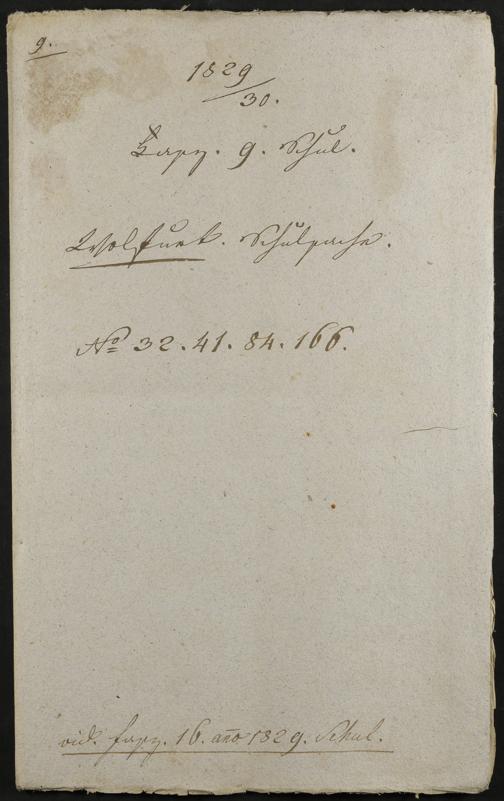 9.
1829
/30.
Fasz. 9. Schul.
Wolfurt. Schulsache.
No 32. 41. 84. 166.
vid. fasz. 16. ano 1829. Schul.